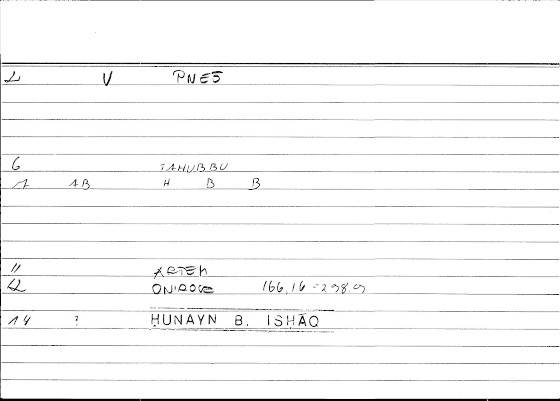 2 V PNE5
6 TAHUBBU
1 AB H B B
11 ARTEM
12 ONIROC 166,16 = 298,9
14 ? ḤUNAYN B. ISḤĀQ